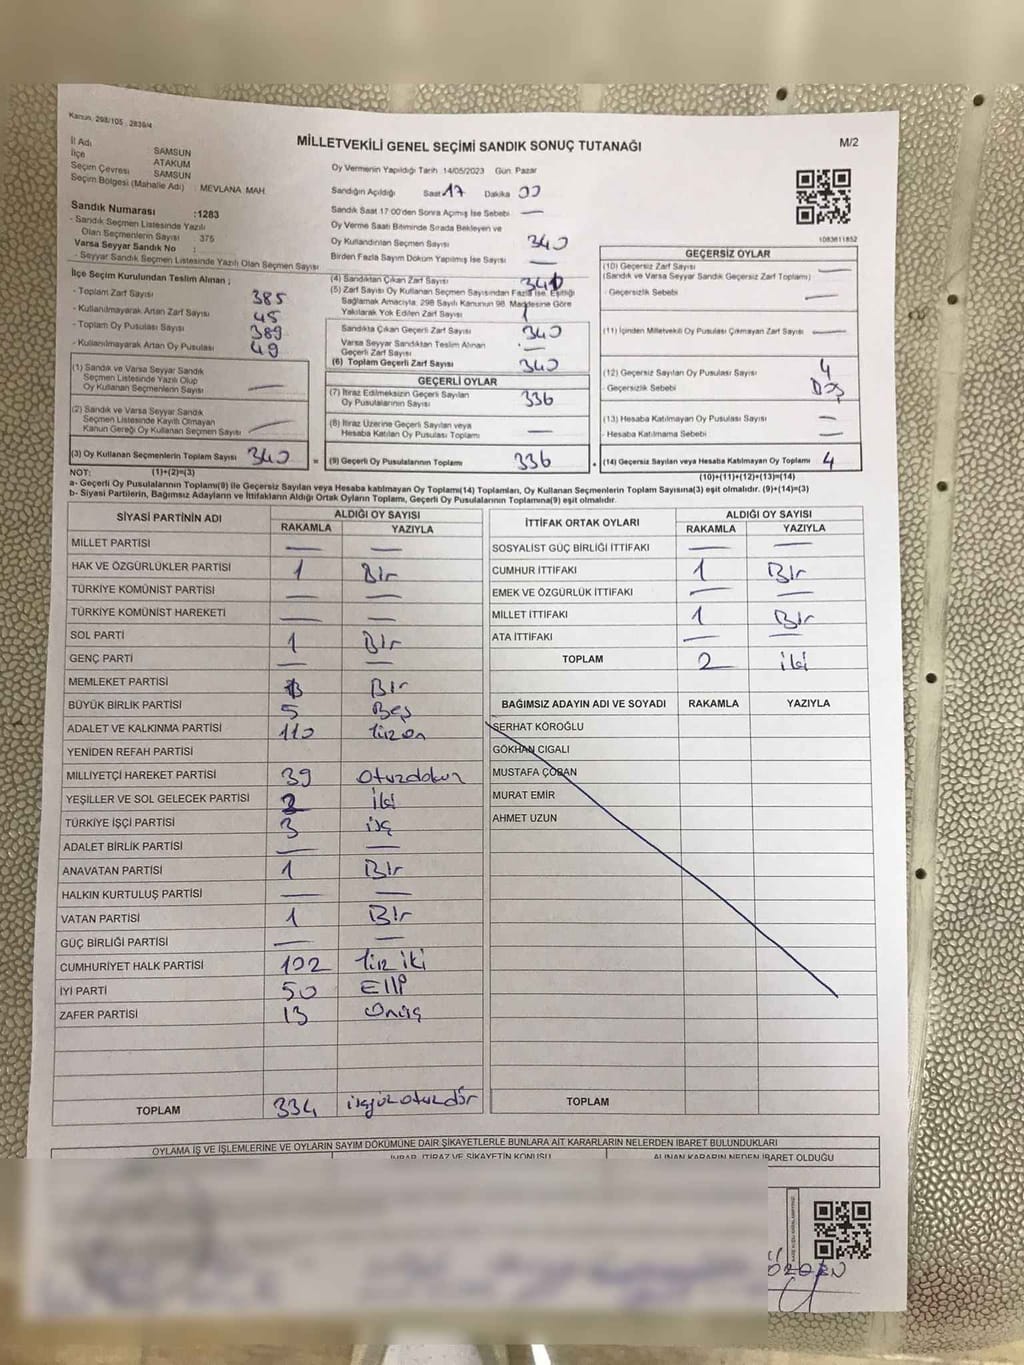 Kanun, 298/105 - 2839/4
MİLLETVEKİLİ GENEL SEÇİMİ SANDIK SONUÇ TUTANAĞI
M/2
İl Adı SAMSUN
İlçe ATAKUM
Seçim Çevresi SAMSUN
Seçim Bölgesi (Mahalle Adı) : MEVLANA MAH
Sandık Numarası :1283
- Sandık Seçmen Listesinde Yazılı
Olan Seçmenlerin Sayısı : 375
Varsa Seyyar Sandık No :
- Seyyar Sandık Seçmen Listesinde Yazılı Olan Seçmen Sayısı
Oy Vermenin Yapıldığı Tarih 14/05/2023 Gün Pazar
Sandığın Açıldığı Saat 17 Dakika 00
Sandık Saat 17:00'den Sonra Açılmış İse Sebebi —
Oy Verme Saati Bitiminde Sırada Bekleyen ve
Oy Kullandırılan Seçmen Sayısı 340
Birden Fazla Sayım Döküm Yapılmış İse Sayısı —
1083611852
İlçe Seçim Kurulundan Teslim Alınan ;
- Toplam Zarf Sayısı 385
- Kullanılmayarak Artan Zarf Sayısı 45
- Toplam Oy Pusulası Sayısı 389
- Kullanılmayarak Artan Oy Pusulası 49
(1) Sandık ve Varsa Seyyar Sandık
Seçmen Listesinde Yazılı Olup
Oy Kullanan Seçmenlerin Sayısı —
(2) Sandık ve Varsa Seyyar Sandık
Seçmen Listesinde Kayıtlı Olmayan
Kanun Gereği Oy Kullanan Seçmen Sayısı —
(3) Oy Kullanan Seçmenlerin Toplam Sayısı 340 =
(1)+(2)=(3)
(4) Sandıktan Çıkan Zarf Sayısı
(5) Zarf Sayısı Oy Kullanan Seçmen Sayısından Fazla İse, Eşitliği
Sağlamak Amacıyla, 298 Sayılı Kanunun 98. Maddesine Göre
Yakılarak Yok Edilen Zarf Sayısı 1
Sandıkta Çıkan Geçerli Zarf Sayısı 340
Varsa Seyyar Sandıktan Teslim Alınan
Geçerli Zarf Sayısı —
(6) Toplam Geçerli Zarf Sayısı 340
GEÇERLİ OYLAR
(7) İtiraz Edilmeksizin Geçerli Sayılan
Oy Pusulalarının Sayısı 336
(8) İtiraz Üzerine Geçerli Sayılan veya
Hesaba Katılan Oy Pusulası Toplamı —
(9) Geçerli Oy Pusulalarının Toplamı 336 +
GEÇERSİZ OYLAR
(10) Geçersiz Zarf Sayısı
(Sandık ve Varsa Seyyar Sandık Geçersiz Zarf Toplamı) —
- Geçersizlik Sebebi —
(11) İçinden Milletvekili Oy Pusulası Çıkmayan Zarf Sayısı —
(12) Geçersiz Sayılan Oy Pusulası Sayısı 4
- Geçersizlik Sebebi
(13) Hesaba Katılmayan Oy Pusulası Sayısı —
- Hesaba Katılmama Sebebi —
(14) Geçersiz Sayılan veya Hesaba Katılmayan Oy Toplamı 4
(10)+(11)+(12)+(13)=(14)
NOT:
a- Geçerli Oy Pusulalarının Toplamı(9) ile Geçersiz Sayılan veya Hesaba katılmayan Oy Toplamı(14) Toplamları, Oy Kullanan Seçmenlerin Toplam Sayısına(3) eşit olmalıdır. (9)+(14)=(3)
b- Siyasi Partilerin, Bağımsız Adayların ve İttifakların Aldığı Ortak Oyların Toplamı, Geçerli Oy Pusulalarının Toplamına(9) eşit olmalıdır.
SİYASİ PARTİNİN ADI
ALDIĞI OY SAYISI
RAKAMLA YAZIYLA
MİLLET PARTİSİ — —
HAK VE ÖZGÜRLÜKLER PARTİSİ 1 Bir
TÜRKİYE KOMÜNİST PARTİSİ — —
TÜRKİYE KOMÜNİST HAREKETİ — —
SOL PARTİ 1 Bir
GENÇ PARTİ — —
MEMLEKET PARTİSİ Bir
BÜYÜK BİRLİK PARTİSİ 5 Beş
ADALET VE KALKINMA PARTİSİ 110 Yüzon
YENİDEN REFAH PARTİSİ
MİLLİYETÇİ HAREKET PARTİSİ 39 Otuzdokuz
YEŞİLLER VE SOL GELECEK PARTİSİ 2 iki
TÜRKİYE İŞÇİ PARTİSİ 3 üç
ADALET BİRLİK PARTİSİ — —
ANAVATAN PARTİSİ 1 Bir
HALKIN KURTULUŞ PARTİSİ — —
VATAN PARTİSİ 1 Bir
GÜÇ BİRLİĞİ PARTİSİ — —
CUMHURİYET HALK PARTİSİ 102 Yüz iki
İYİ PARTİ 50 Elli
ZAFER PARTİSİ 13 Onüç
TOPLAM 334 üçyüzotuzdör
İTTİFAK ORTAK OYLARI
ALDIĞI OY SAYISI
RAKAMLA YAZIYLA
SOSYALİST GÜÇ BİRLİĞİ İTTİFAKI — —
CUMHUR İTTİFAKI 1 Bir
EMEK VE ÖZGÜRLÜK İTTİFAKI — —
MİLLET İTTİFAKI 1 Bir
ATA İTTİFAKI — —
TOPLAM 2 iki
BAĞIMSIZ ADAYIN ADI VE SOYADI RAKAMLA YAZIYLA
SERHAT KÖROĞLU
GÖKHAN CIGALI
MUSTAFA ÇOBAN
MURAT EMİR
AHMET UZUN
TOPLAM
OYLAMA İŞ VE İŞLEMLERİNE VE OYLARIN SAYIM DÖKÜMÜNE DAİR ŞİKAYETLERLE BUNLARA AİT KARARLARIN NELERDEN İBARET BULUNDUKLARI
İHBAR, İTİRAZ VE ŞİKAYETİN KONUSU
ALINAN KARARIN NEDEN İBARET OLDUĞU